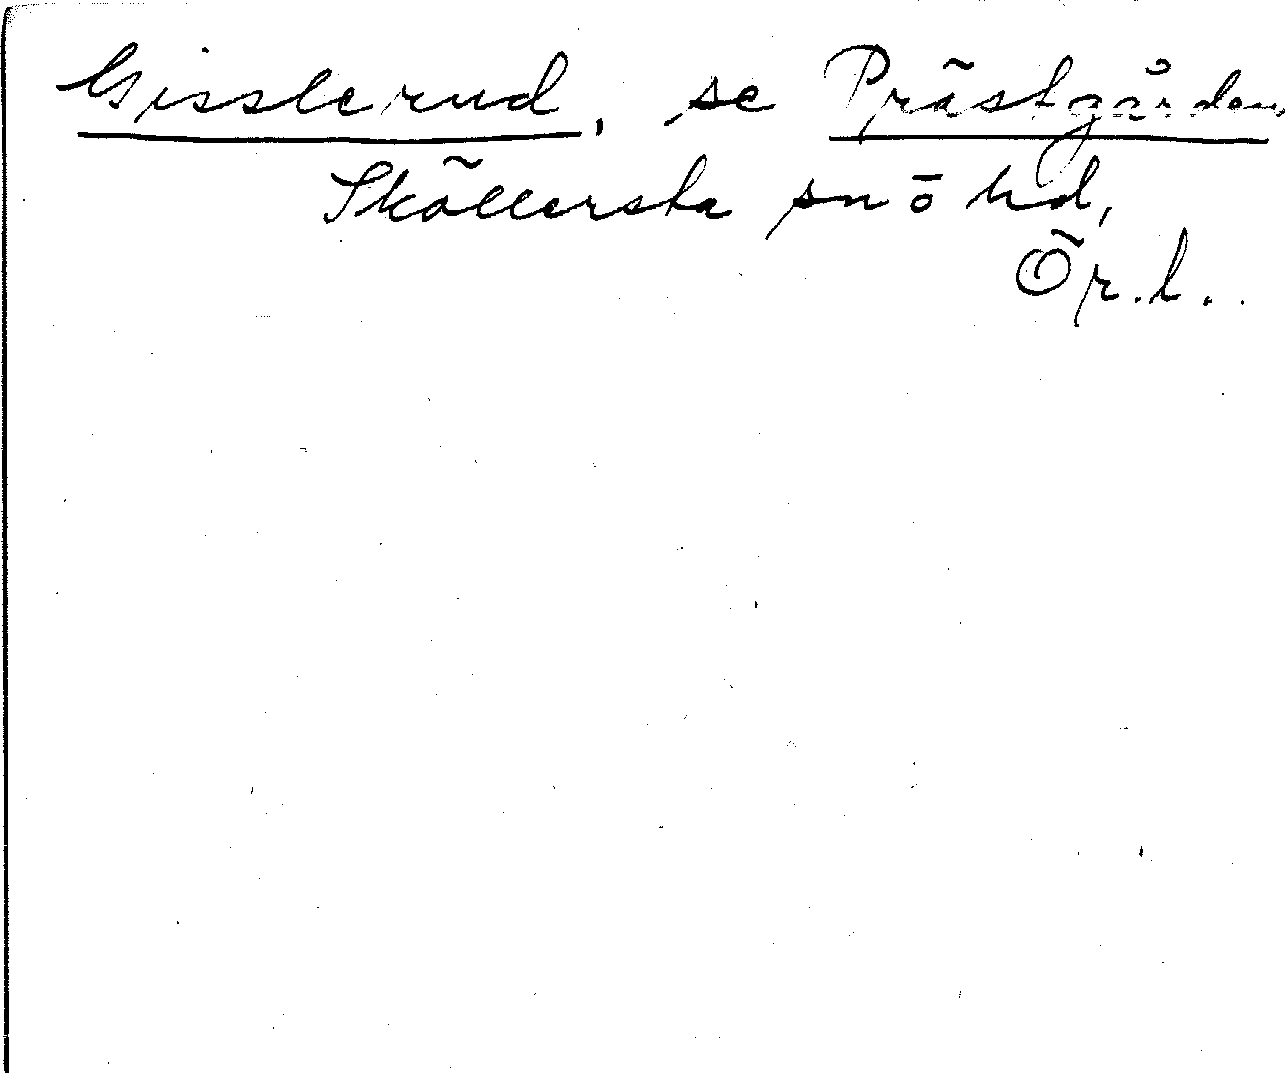 Gisslerud, se Prästgården,
Sköllersta sn ō hd,
Ör. l.